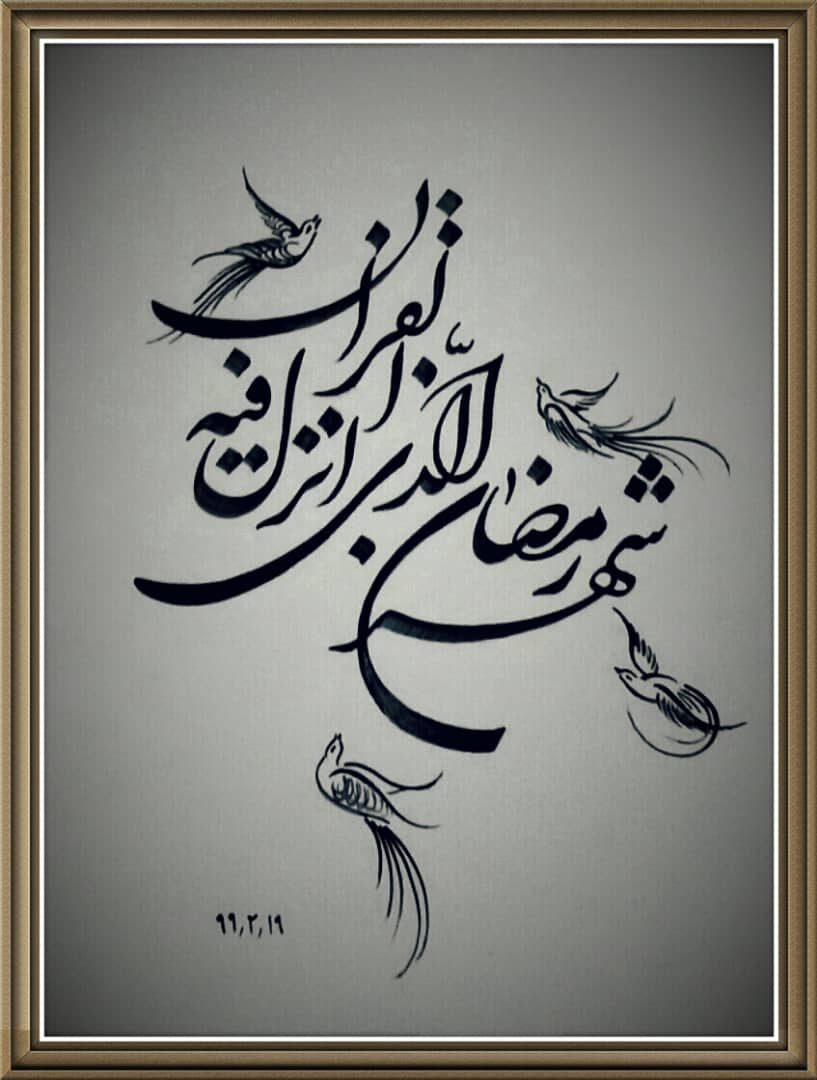 شهر رمضان الّذی انزل فیه القران
۹۹٫۲٫۱۹